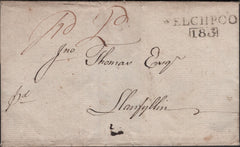 WELCHPOO
183
Jno Thomas Esqr
pd
Llanfyllin